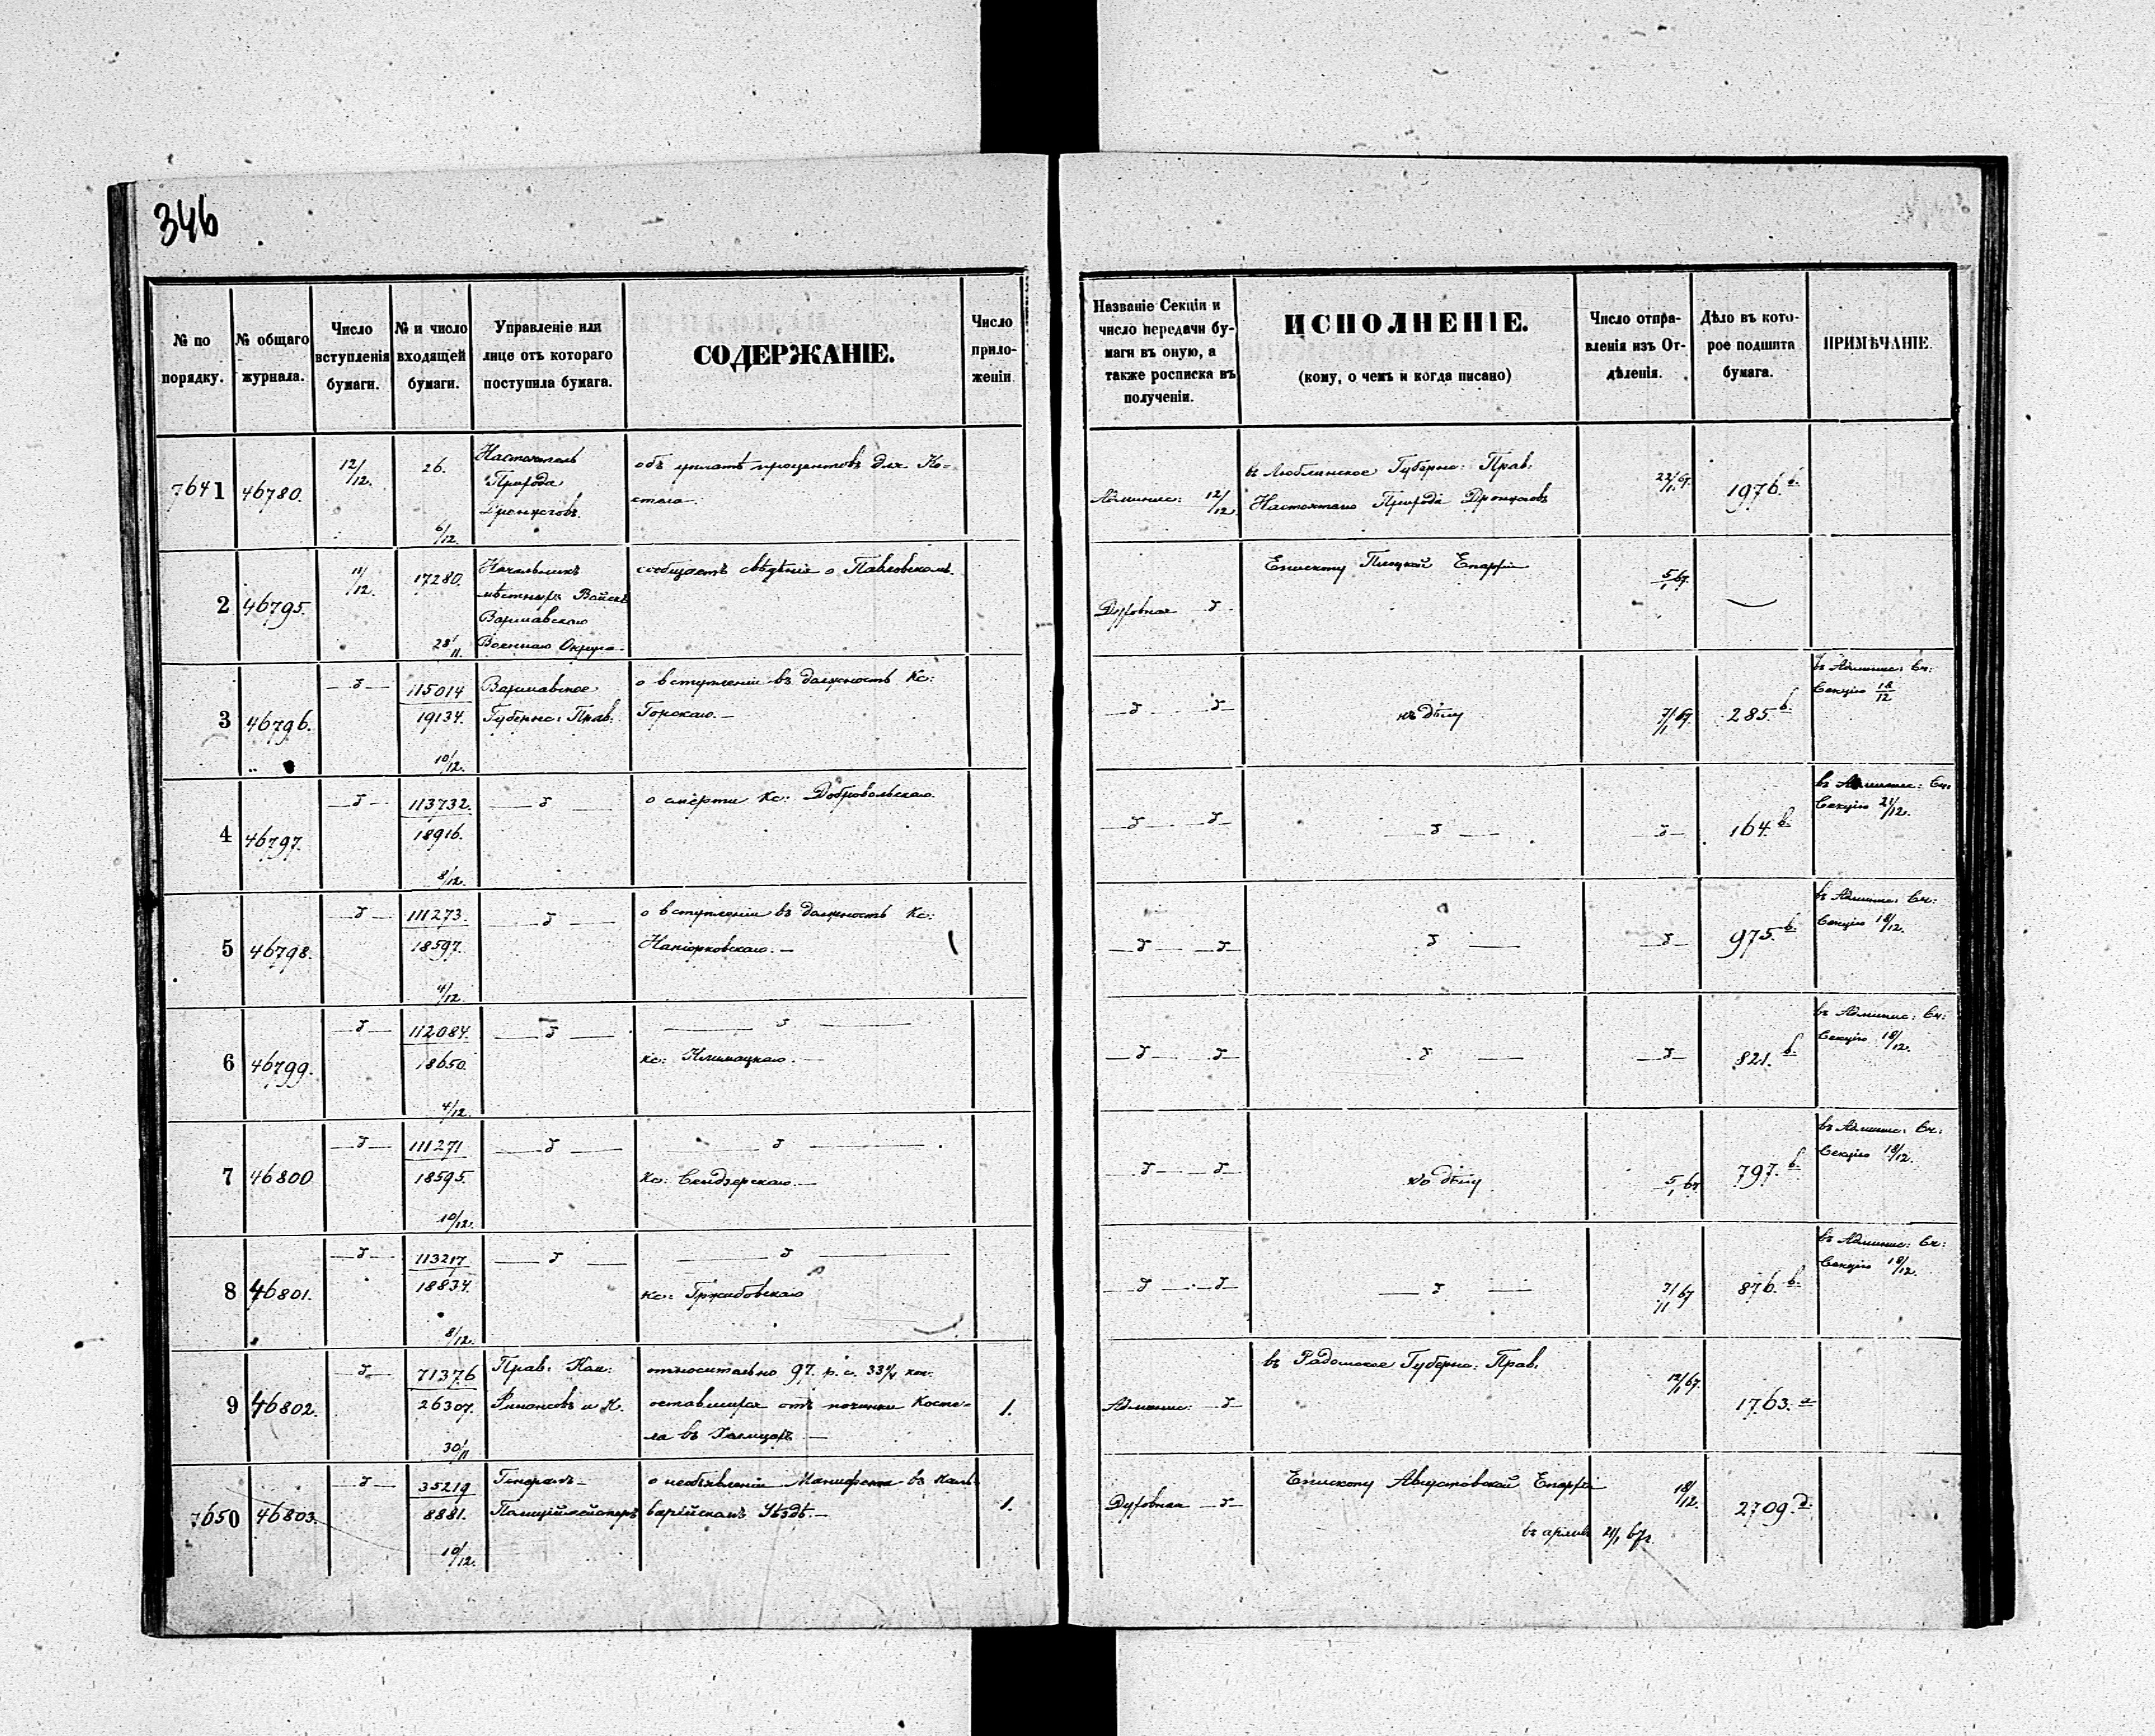 346
№ по порядку.
№ общаго журнала.
Число вступленія бумаги.
№ и число входящей бумаги.
Управленіе или лице отъ котораго поступила бумага.
СОДЕРЖАНІЕ.
Число приложеніи
Названіе Секціи и число передачи бумаги въ оную, а также росписка въ полученіи.
ИСПОЛНЕНІЕ.
(кому, о чемъ и когда писано)
Число отправленія изъ Отдѣленія.
Дѣло въ которое подшита бумага.
ПРИМѢЧАНІЕ.
7641 46780. 12/12. 26. Настоятель
Прихода
6/12.
объ уплатѣ процентовъ для Ко-
стела.
Админис: 12/12
въ Люблинское Губернс: Прав.
Настоятелю Прихода
22/1 67. 1976.
2 46795. 11/12. 17280. Начальникъ
мѣстныхъ Войскъ
Варшавскаго
28/11. Военнаго Округа
сообщаетъ свѣдѣніе о Павловскомъ.
Духовная
Епископу Плоцкой Епархіи
5/1 67.
3 46796. 115014 Варшавское
19134. Губернс: Прав.
10/12.
о вступленіи въ должность Кс:
Горскаго.—
къ дѣлу
7/1 67 285 в.
въ Админис: Сч:
Секцію 18/12
4 46797. 113732.
18916.
8/12.
о смерти Кс: Добровольскаго.
164 в.
въ Админис: Сч:
Секцію 21/12.
5 46798. 111273.
18597.
4/12
о вступленіи въ должность Кс:
Напіорковскаго.—
975. в.
въ Админис: Сч:
Секцію 18/12.
6 46799. 112084.
18650.
4/12
Кс: Климацкаго.—
821. в.
въ Админис: Сч:
Секцію 18/12.
7 46800 111271
18595.
10/12.
Кс: Сендзерскаго.—
къ дѣлу
5/1 67 797. в.
въ Админис: Сч:
Секцію 18/12.
8 46801. 113217
18834.
8/12.
Кс: Гржибовскаго
876. в.
въ Админис: Сч:
Секцію 18/12.
9 46802. 71376 Прав: Ком:
26307. Финансовъ и К.
30/11
относительно 97. р. с. 33 коп.
оставшихся отъ починки Косте-
ла въ
1.
Админис:
въ Радомское Губернс: Прав.
12/1 67. 1763. а
7650 46803. 35219 Генералъ-
8881. Полиціймейстеръ
10/12.
о необъявленіи Манифеста въ Каль-
варійскомъ Уѣздѣ.—
1.
Духовная
Епископу Августовской Епархіи
18/12. 2709. д.
въ архивъ 21/1 67 г.